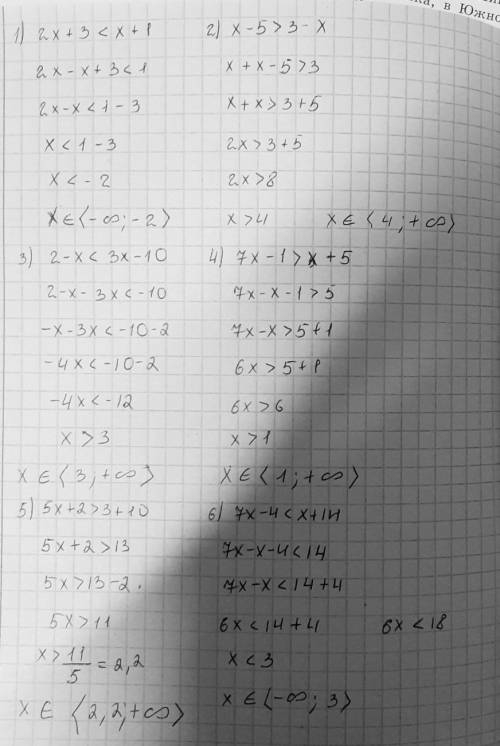 ка, в Южно
1) 2x + 3 < x + 1
2x - x + 3 < 1
2x - x < 1 - 3
x < 1 - 3
x < - 2
x ∈ ⟨-∞; -2⟩
2) x - 5 > 3 - x
x + x - 5 > 3
x + x > 3 + 5
2x > 3 + 5
2x > 8
x > 4 x ∈ ⟨4; +∞⟩
3) 2 - x < 3x - 10
2 - x - 3x < -10
-x - 3x < -10 - 2
-4x < -10 - 2
-4x < -12
x > 3
x ∈ ⟨3; +∞⟩
4) 7x - 1 > x + 5
7x - x - 1 > 5
7x - x > 5 + 1
6x > 5 + 1
6x > 6
x > 1
x ∈ ⟨1; +∞⟩
5) 5x + 2 > 3 + 10
5x + 2 > 13
5x > 13 - 2.
5x > 11
x > 11/5 = 2,2
x ∈ ⟨2,2; +∞⟩
6) 7x - 4 < x + 14
7x - x - 4 < 14
7x - x < 14 + 4
6x < 14 + 4 6x < 18
x < 3
x ∈ ⟨-∞; 3⟩